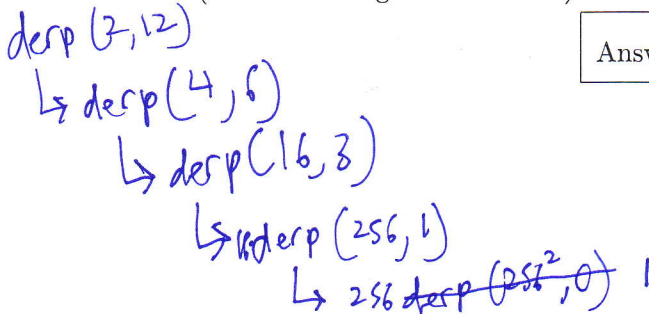 derp(2,12)
Answ
↳ derp(4,6)
↳ derp(16,3)
↳ 16derp(256,1)
↳ 256 derp(256²,0) 1